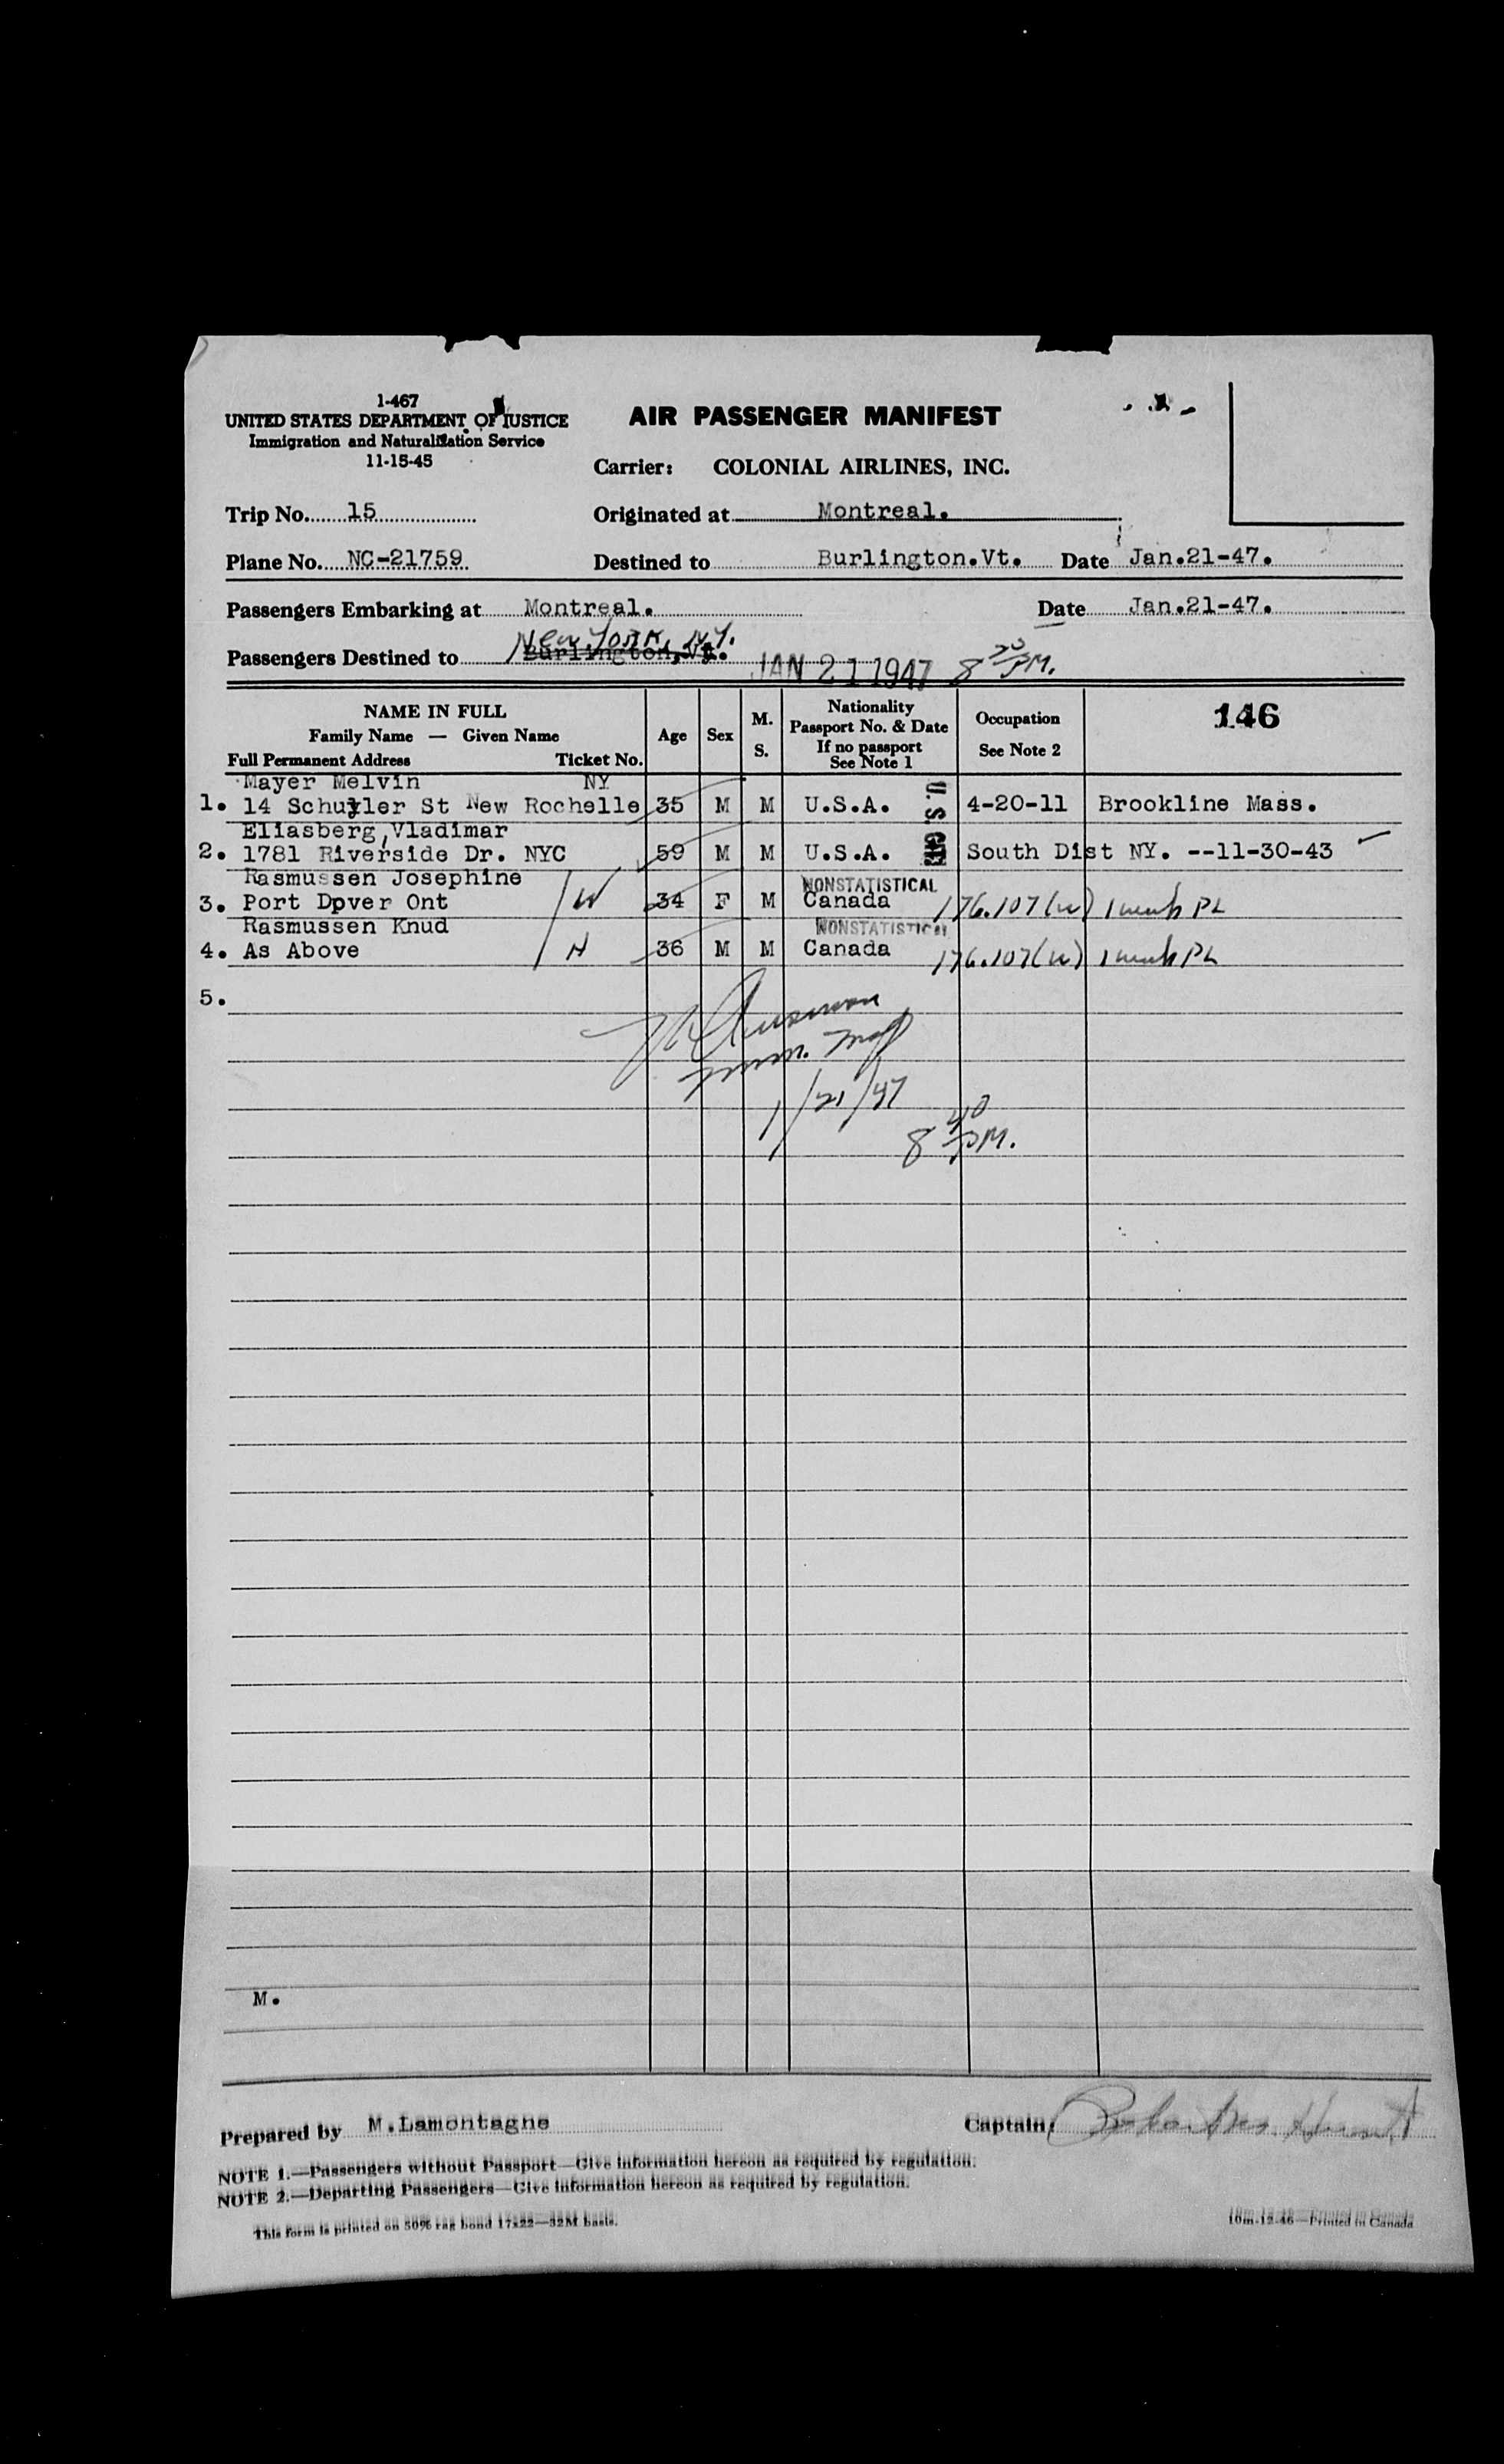 1-467
UNITED STATES DEPARTMENT OF JUSTICE
Immigration and Naturalization Service
11-15-45
AIR PASSENGER MANIFEST
Carrier: COLONIAL AIRLINES, INC.
Trip No. 15 Originated at Montreal.
Plane No. NC-21759 Destined to Burlington.Vt. Date Jan.21-47.
Passengers Embarking at Montreal. Date Jan.21-47.
New York, N.Y.
Passengers Destined to Burlington,Vt. JAN 21 1947 8 PM.
NAME IN FULL
Family Name — Given Name
Full Permanent Address Ticket No.
Age
Sex
M. S.
Nationality
Passport No. & Date
If no passport
See Note 1
Occupation
See Note 2
146
Mayer Melvin NY
1. 14 Schuyler St New Rochelle 35 M M U.S.A. U.S. 4-20-11 Brookline Mass.
Eliasberg,Vladimar
2. 1781 Riverside Dr. NYC 59 M M U.S.A. South Dist NY. --11-30-43
Rasmussen Josephine NONSTATISTICAL
3. Port Dpver Ont W 34 F M Canada 176.107(w) 1 week PL
Rasmussen Knud NONSTATISTICAL
4. As Above H 36 M M Canada 176.107(w) 1 week PL
5.
1/21/47
8 40 PM.
M.
Prepared by M.Lamontagne Captain
NOTE 1.—Passengers without Passport—Give information hereon as required by regulation.
NOTE 2.—Departing Passengers—Give information hereon as required by regulation.
This form is printed on 50% rag bond 17x22—32M basis.
10m-12-46—Printed in Canada